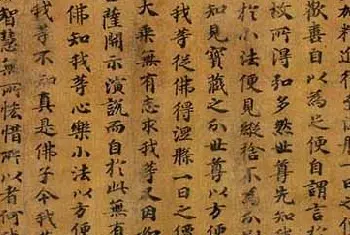 加精進得至涅槃一日之
歡喜自以為足便自謂言於
故所得弘多然世尊先知我
於小法便見縱捨不為分
知見寶藏之分世尊以方
我等從佛得涅槃一日之價
大乘無有志求我等又因如
薩開示演說而自於此無有
佛知我等心樂小法以方便
我等不知真是佛子今我等
智慧無所悋惜所以者何